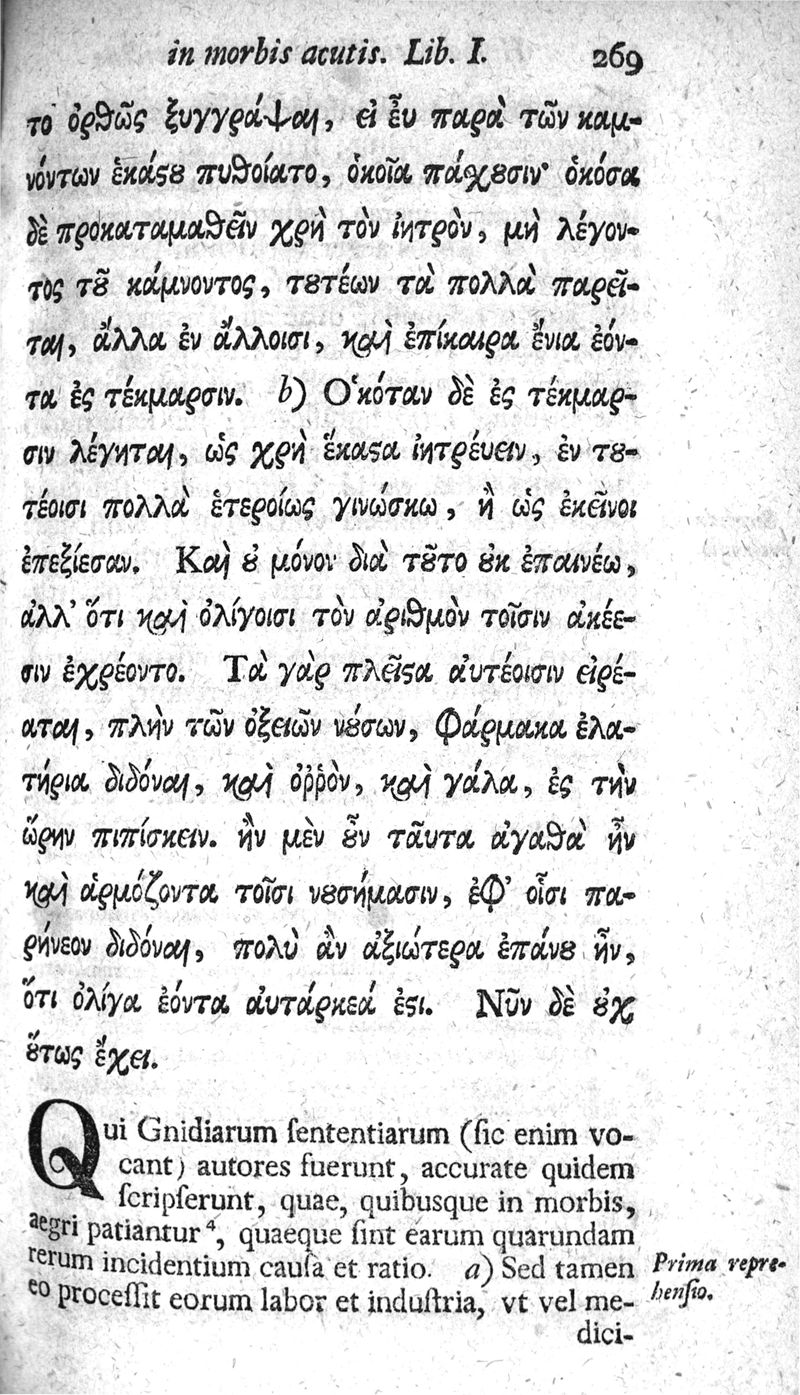 in morbis acutis. Lib. I. 269
το ὀρθῶς ξυγγράψαι, εἰ εὖ παρὰ τῶν καμ-
νόντων ἑκάϛȣ πυθοίατο, ὁκοῖα πάχȣσιν· ὁκόσα
δὲ προκαταμαθεῖν χρὴ τὸν ἰητρὸν, μὴ λέγον-
τος τȣ͂ κάμνοντος, τȣτέων τὰ πολλὰ παρεῖ-
ται, ἄλλα ἐν ἄλλοισι, καὶ ἐπίκαιρα ἔνια ἐόν-
τα ἐς τέκμαρσιν. b) Ὁκόταν δὲ ἐς τέκμαρ-
σιν λέγηται, ὡς χρὴ ἕκαϛα ἰητρέυειν, ἐν τȣ-
τέοισι πολλὰ ἑτεροίως γινώσκω, ἢ ὡς ἐκεῖνοι
ἐπεξίεσαν. Καὶ ȣ̓ μόνον διὰ τȣ͂το ȣ̓κ ἐπαινέω,
ἀλλ’ ὅτι καὶ ὀλίγοισι τὸν ἀριθμὸν τοῖσιν ἀκέε-
σιν ἐχρέοντο. Τὰ γὰρ πλεῖϛα ἀυτέοισιν εἰρέ-
αται, πλὴν τῶν ὀξειῶν νȣ́σων, φάρμακα ἐλα-
τήρια διδόναι, καὶ ὀῤῥὸν, καὶ γάλα, ἐς τὴν
ὥρην πιπίσκειν. ἢν μὲν ȣ̓͂ν ταῦτα ἀγαθὰ ἦν
καὶ ἁρμόζοντα τοῖσι νȣσήμασιν, ἐφ’ οἷσι πα-
ρήνεον διδόναι, πολὺ ἂν ἀξιώτερα ἐπάινȣ ἦν,
ὅτι ὀλίγα ἐόντα ἀυτάρκεά ἐϛι. Νῦν δὲ ȣ̓χ
ȣ̔́τως ἔχει.
Qui Gnidiarum ſententiarum (ſic enim vo-
cant) autores fuerunt, accurate quidem
ſcripſerunt, quae, quibusque in morbis,
aegri patiantur⁴, quaeque ſint earum quarundam
rerum incidentium cauſa et ratio. a) Sed tamen
eo proceſſit eorum labor et induſtria, vt vel me-
dici-
Prima repre-
henſio.